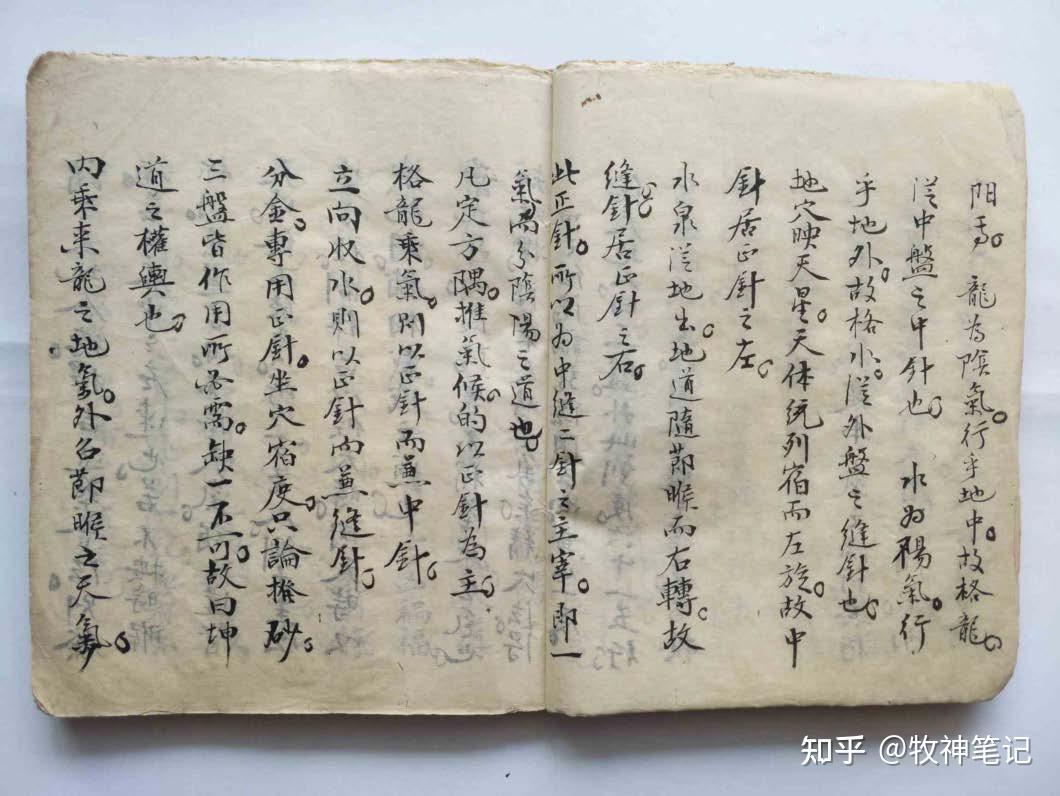 阳也。龍為陰氣。行乎地中。故格龍。
從中盤之中針也。水為陽氣。行
乎地外。故格水。從外盤之縫針也。
地穴映天星。天体統列宿而左旋。故中
針居正針之左。
水泉從地出。地道隨節睺而右轉。故
縫針居正針之右。
此正針。所以為中縫二針之主宰。即一
氣而分陰陽之道也。
凡定方隅。推氣候。的以正針為主。
格龍乘氣。則以正針而兼中針。
立向收水。則以正針而兼縫針。
分金專用正針。坐穴宿度。只論撥砂。
三盤皆作用所必需。缺一不可。故曰坤
道之權輿也。
内乘来龍之地氣。外占節睺之天氣。
知乎 @牧神笔记